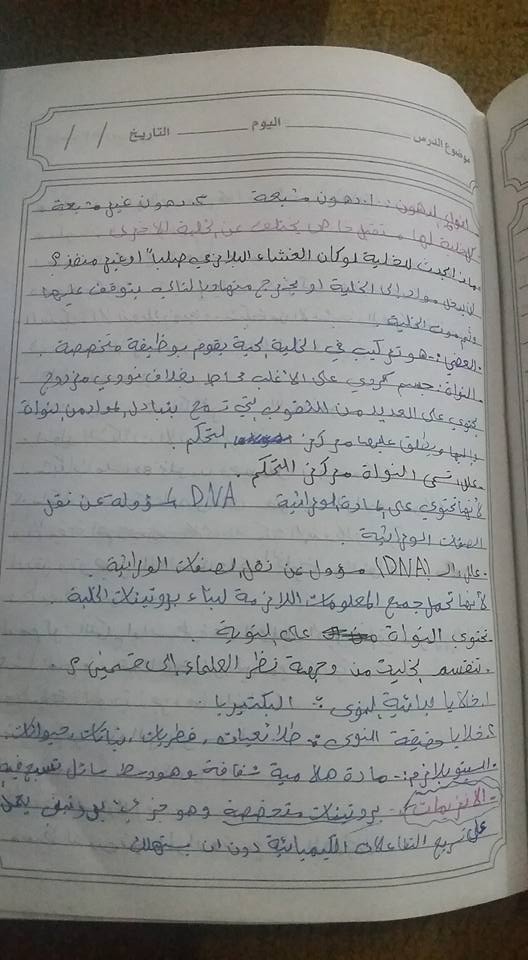 موضوع الدرس ــــــــ اليوم ــــــــ التاريخ / /
أنواع الدهون: 1. دهون مشبعة 2. دهون غير مشبعة
كل خلية لها مستقبل خاص يختلف عن الخلية الأخرى
ماذا يحدث للخلية لو كان الغشاء البلازمي صلباً أو غير منفذ؟
لن يدخل مواد إلى الخلية أو يخرج منها وبالتالي يتوقف عليها
موت الخلية.
العضي:- هو تركيب في الخلية الحية يقوم بوظيفة متخصصة.
النواة: جسم كروي على الأغلب محاط بغلاف نووي مزدوج
يحتوي على العديد من الثقوب التي تسمح بتبادل المواد من النواة
وإليها ويطلق عليها مركز التحكم.
علل: تسمى النواة مركز التحكم.
لأنها تحتوي على المادة الوراثية DNA المسؤولة عن نقل
الصفات الوراثية.
علل: الـ (DNA) مسؤول عن نقل الصفات الوراثية.
لأنها تحمل جميع المعلومات اللازمة لبناء بروتينات الخلية.
تحتوي النواة على النوية.
تنقسم الخلية من وجهة نظر العلماء إلى قسمين؟.
1. خلايا بدائية النوى: البكتيريا.
2. خلايا حقيقة النوى: طلائعيات، فطريات، نباتات، حيوانات.
السيتوبلازم:- مادة هلامية شفافة وهو وسط سائل تسبح فيه
الأنزيمات:- بروتينات متخصصة وهو جزيء بروتيني يعمل
على تسريع التفاعلات الكيميائية دون أن يستهلك